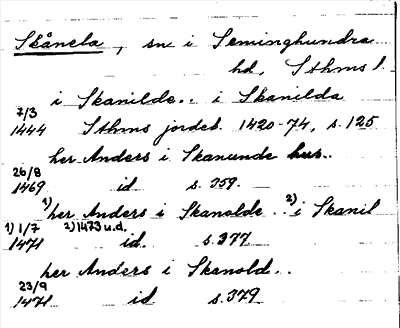 Skånela, sn i Seminghundra
hd, Sthms l.
i Skanilde.. i Skanilda
7/3
1444 Sthms jordeb. 1420-74, s. 125
her Anders i Skanunde hus..
26/8
1469 id s. 359.
1) her Anders i Skanolde.. 2) i Skanil
1) 1/7 2) 1473 u.d.
1471 id. s. 377
her Anders i Skanold..
23/9
1471 id s. 379